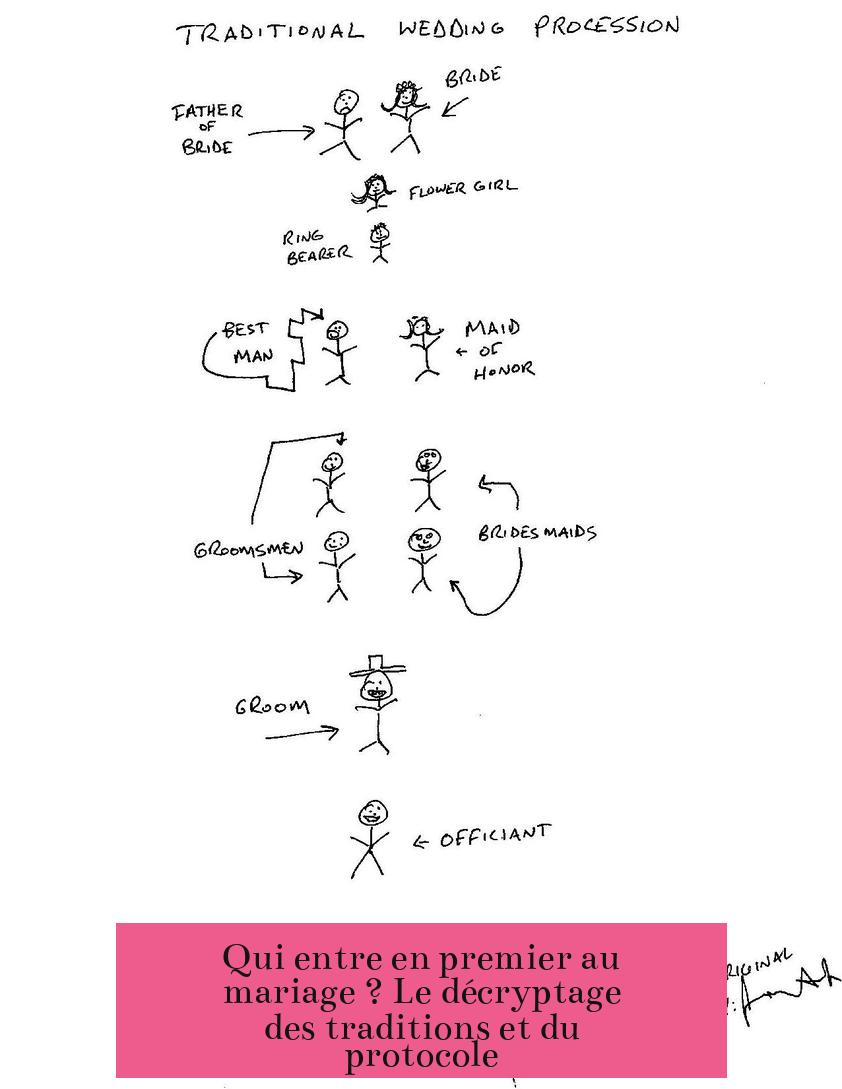 TRADITIONAL WEDDING PROCESSION
BRIDE
FATHER
OF
BRIDE
FLOWER GIRL
RING
BEARER
BEST
MAN
MAID
OF
HONOR
GROOMSMEN
BRIDESMAIDS
GROOM
OFFICIANT
RIGINAL
Qui entre en premier au
mariage ? Le décryptage
des traditions et du
protocole